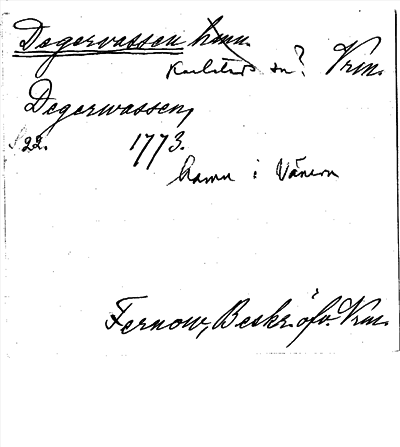 Degervassen hmn. Vrm.
Karlstads sn?
Degerwassen,
S. 22. 1773.
hamn i Vänern
Fernow, Beskr. öfv. Vrm.